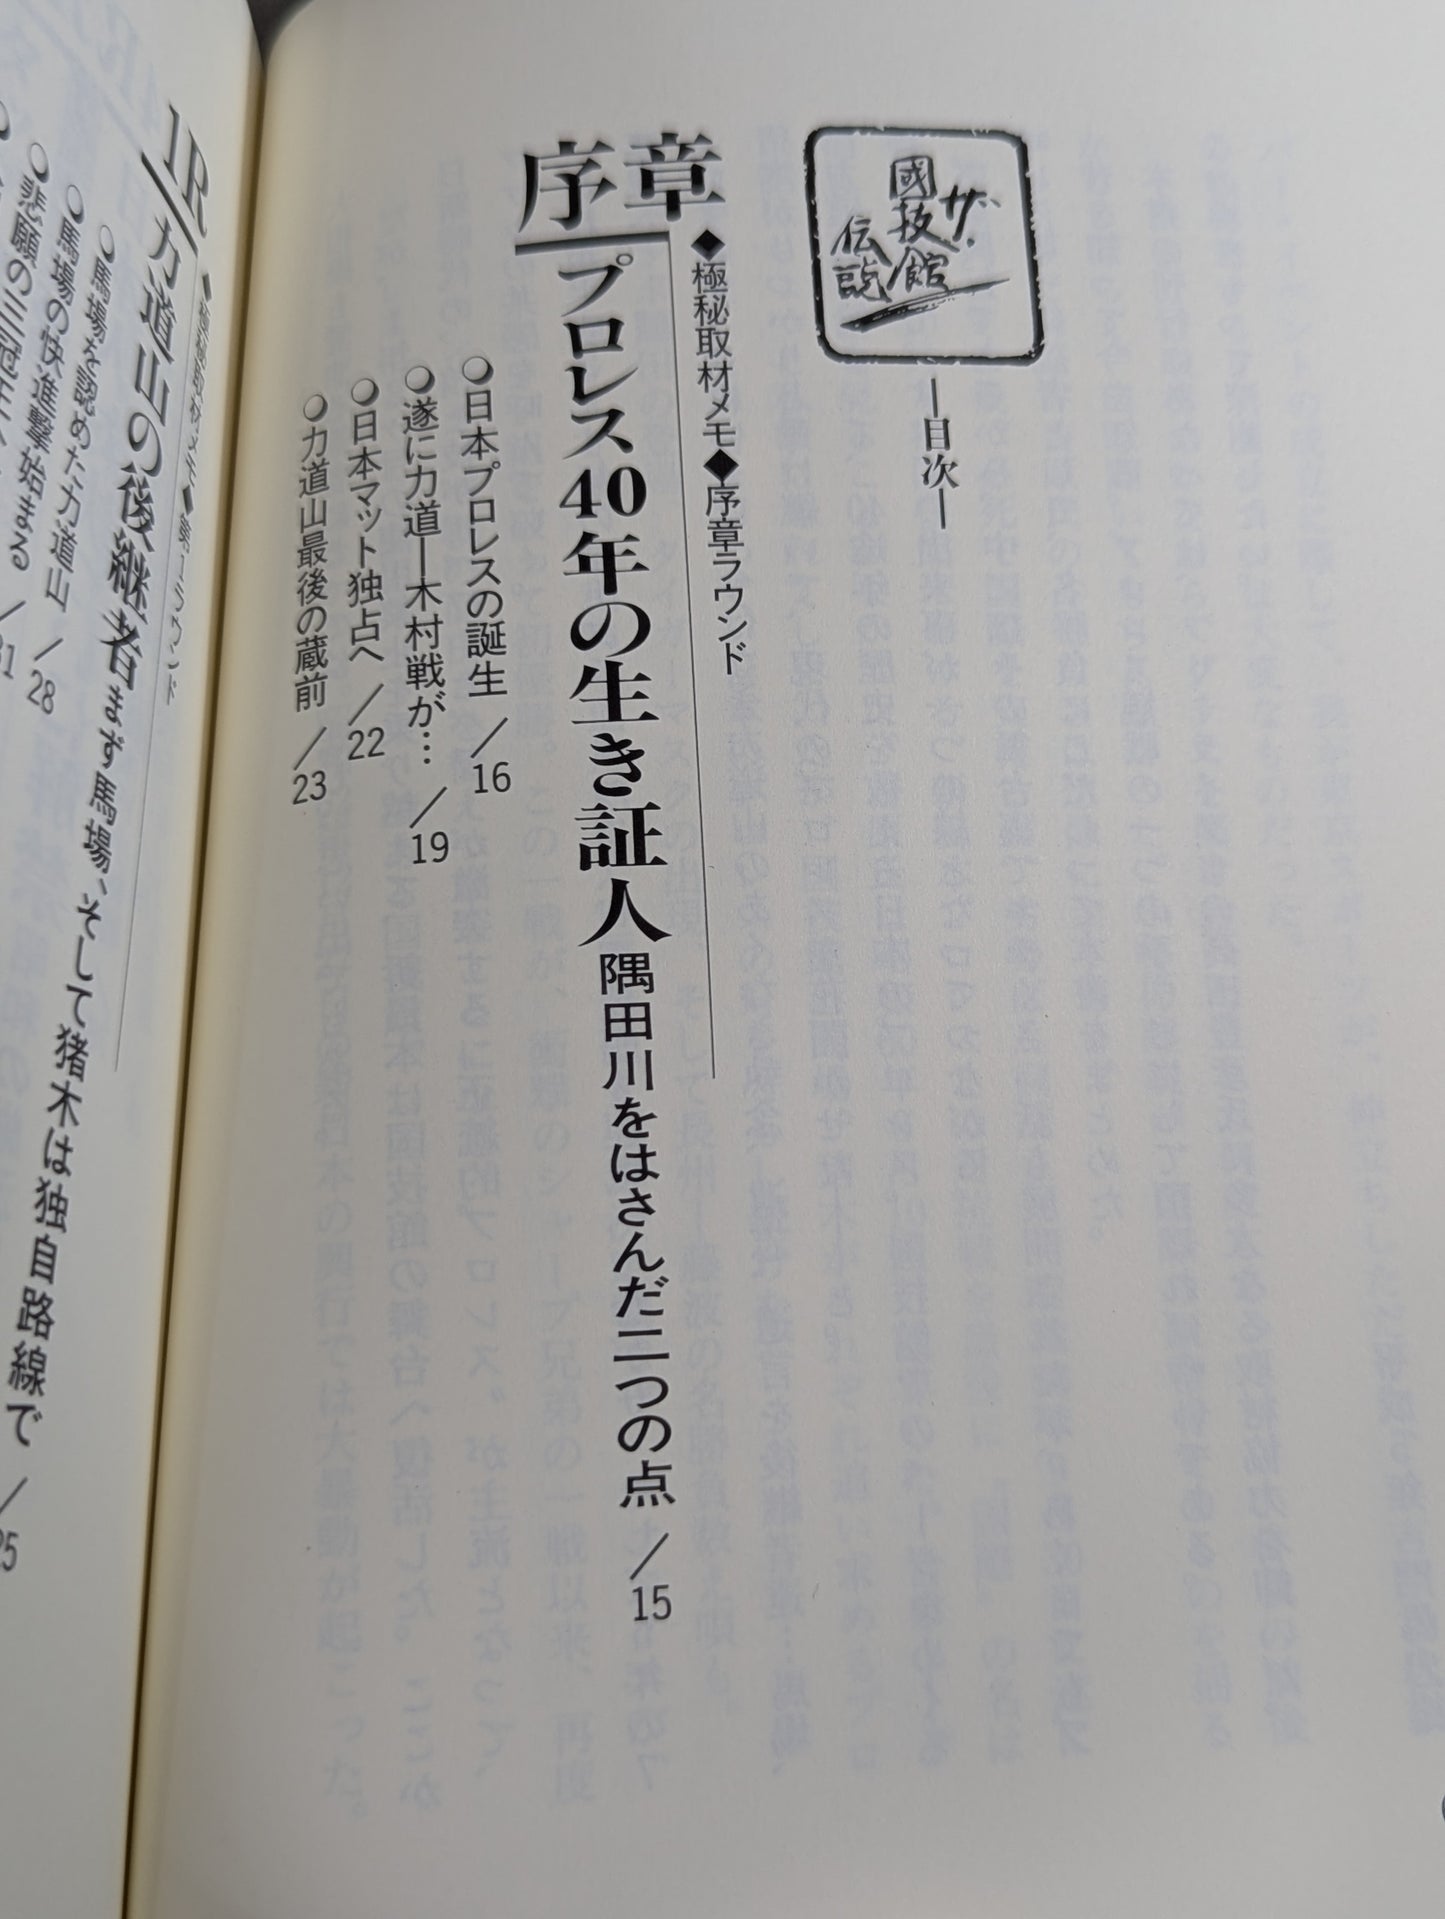 ザ・
國技館
伝説
―目次―
◆極秘取材メモ◆序章ラウンド
序章
プロレス40年の生き証人 隅田川をはさんだ二つの点 /15
○日本プロレスの誕生 /16
○遂に力道―木村戦が… /19
○日本マット独占へ /22
○力道山最後の蔵前 /23
◆極秘取材メモ◆第1ラウンド
1R 力道山の後継者 まず馬場、そして猪木は独自路線で /25
○馬場を認めた力道山 /28
○馬場の快進撃始まる /31
○悲願の三冠王